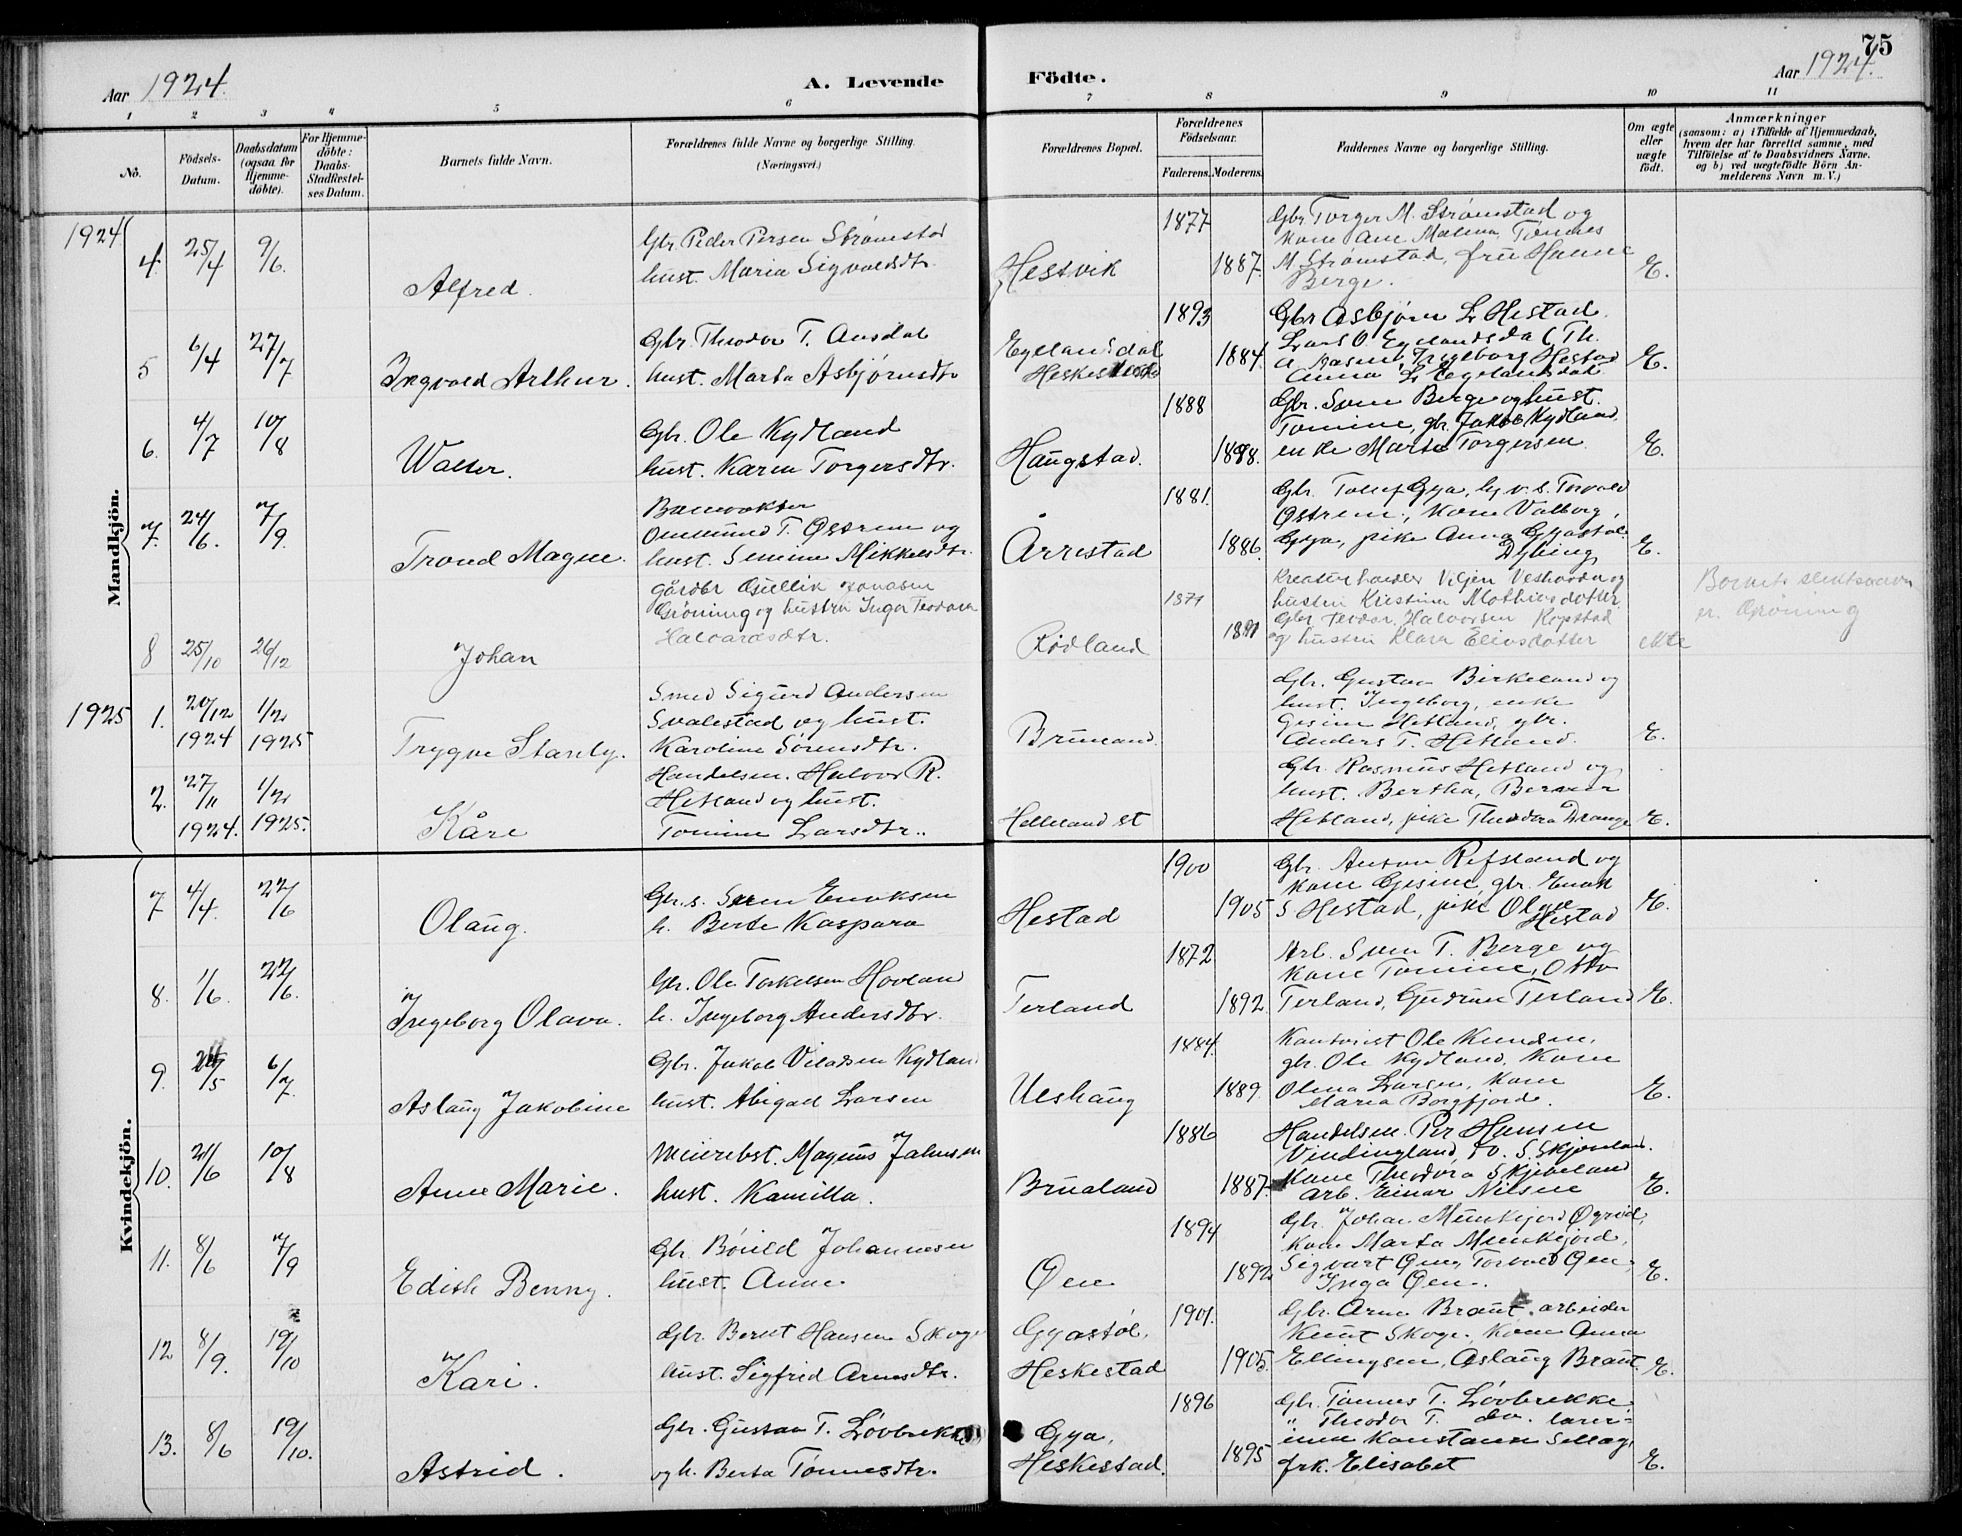 75
Aar 1924.
A. Levende Födte.
Aar 1924.
1 2 3 4 5 6 7 8 9 10 11
No.
Födsels-Datum.
Daabsdatum (ogsaa for Hjemme-döbte).
For Hjemme-döbte: Daabs-Stadfæstel-ses Datum.
Barnets fulde Navn.
Forældrenes fulde Navne og borgerlige Stilling. (Næringsvei.)
Forældrenes Bopæl.
Forældrenes Födselsaar.
Faderens. Moderens.
Faddernes Navne og borgerlige Stilling.
Om ægte eller uægte födt.
Anmærkninger
(saasom: a) i Tilfælde af Hjemmedaab, hvem der har forrettet samme, med Tilföielse af to Daabsvidners Navne, og b) ved uægtefödte Börn An-melderens Navn m. V.)
Mandkjön.
1924
4. 25/4 9/6.
Alfred.
Gbr Peder Persen Strømstad
hust. Maria Sigvaldsdtr.
Hestvik
1877
1887.
Gbr Torger M. Strømstad og
kone Ane Malena, Tønnes
M. Strømstad, fru Hanne
Berge.
E.
5 6/4 27/7
Ingvald Arthur.
Gbr. Theodor T. Ausdal
hust. Marta Asbjørnsdtr
Egelandsdal
Heskestad
1893
1884.
Gbr Asbjørn L Hestad.
Lars O Egelandsdal, Th.
Ingeborg Hestad
Anna L Egelandsdal
E.
6. 4/7 10/8
Walter.
Gbr. Ole Kydland
hust. Karen Torgersdtr.
Haugstad.
1888
1888.
Gbr. Sven Berge og hust.
Tomine, gbr. Jakob Kydland
enke Marta Torgersen
E.
7. 24/6. 7/9.
Trond Magne.
Banevokter
Ommund T. Østrem og
hust. Semine Mikkelsdtr.
Årrestad
1881.
1886.
Gbr. Tollef Gya, bv. s. Torvald
Østrem, kone Valborg
Gya, pike Anna Gyastøl
Dybing
E.
8 25/10 26/12
Johan
gårdbr Gullik Jonasen
Grøning og hustru Inga Teodora
Halvardsdtr.
Rødland
1871
1891
Kreaturhandler Viljen Veshovda og
hustru Kristine Mathiasdotter
Gbr. Teodor Halvorsen Kopstad
og hustru Klara Eliasdotter
ekte
Barnets slektsnavn
er Grøning
1925
1. 20/12 1924 1/2 1925
Trygve Stanly.
Smed Sigurd Andersen
Svalestad og hust.
Karoline Sørensdtr.
Brueland.
Gbr. Gustav Birkeland og
hust. Ingeborg, enke
Gesine Hetland, gbr.
Anders T. Hetland.
E.
2. 27/11 1924. 1/2 1925.
Kåre
Handelsm. Halvor R.
Hetland og hust.
Tomine Larsdtr..
Helleland st
Gbr. Rasmus Hetland og
hust. Bertha, Berner
Hetland, pike Theodora Drange
E.
Kvindekjön.
7 4/4. 22/6
Olaug.
Gbr. s. Søren Enoksen
h. Berte Kaspara
Hestad
1900
1905
Gbr. Anton Refsland og
kone Gesine, gbr. Enok
S Hestad, pike Olga
Hestad
E.
8. 1/6. 22/6.
Ingeborg Olava.
Gbr. Ole Torkelsen Hovland
h. Ingeborg Andersdtr.
Terland
1872
1892
Arb. Sven T. Berge og
kone Tomine, Otto
Terland, Gudrun Terland
E.
9. /5 6/7.
Aslaug Jakobine
Gbr. Jakob Viladsen Kydland
hust. Abigael Larsen
Ueshaug
1884.
1889.
Kantonist Ole Knudsen,
gbr. Ole Kydland, kone
Olena Larsen, kone
Maria Borgfjord.
E.
10. 21/6 10/8
Anne Marie.
Meieribst. Magnus Jahnsen
hust. Kamilla.
Brueland
1886
1887.
Handelsm. Per Hansen
Vindingland, do. S. Skjerland.
Kone Theodora Skjebeland
Arb. Einar Nilsen
E.
11. 8/6 7/9
Edith Benny.
Gbr. Børild Johannesen
hust. Anne.
Øen
1894
1892
Gbr. Johan Munkejord Øgreid,
kone Marta Munkejord,
Sigvart Øen, Torvald Øen,
Inga Øen.
E.
12 8/9. 19/10
Kari.
Gbr. Bernt Hansen Skoge
hust. Sigfrid Arnesdtr.
Gyastøl,
Heskestad
1901.
1905.
Gbr. Arne Braut, arbeider
Knut Skoge, kone Anna
Ellingsen, Aslaug Braut
E.
13. 8/6 19/10.
Astrid.
Gbr. Gustav T. Løvbrekke
og h. Berta Tønnesdtr.
Gya,
Heskestad.
1896
1895
Gbr. Tønnes T. Løvbrekke
" Theodor T. do. lærer-
inne Konstanse Sellæg,
frk. Elisabet
E.